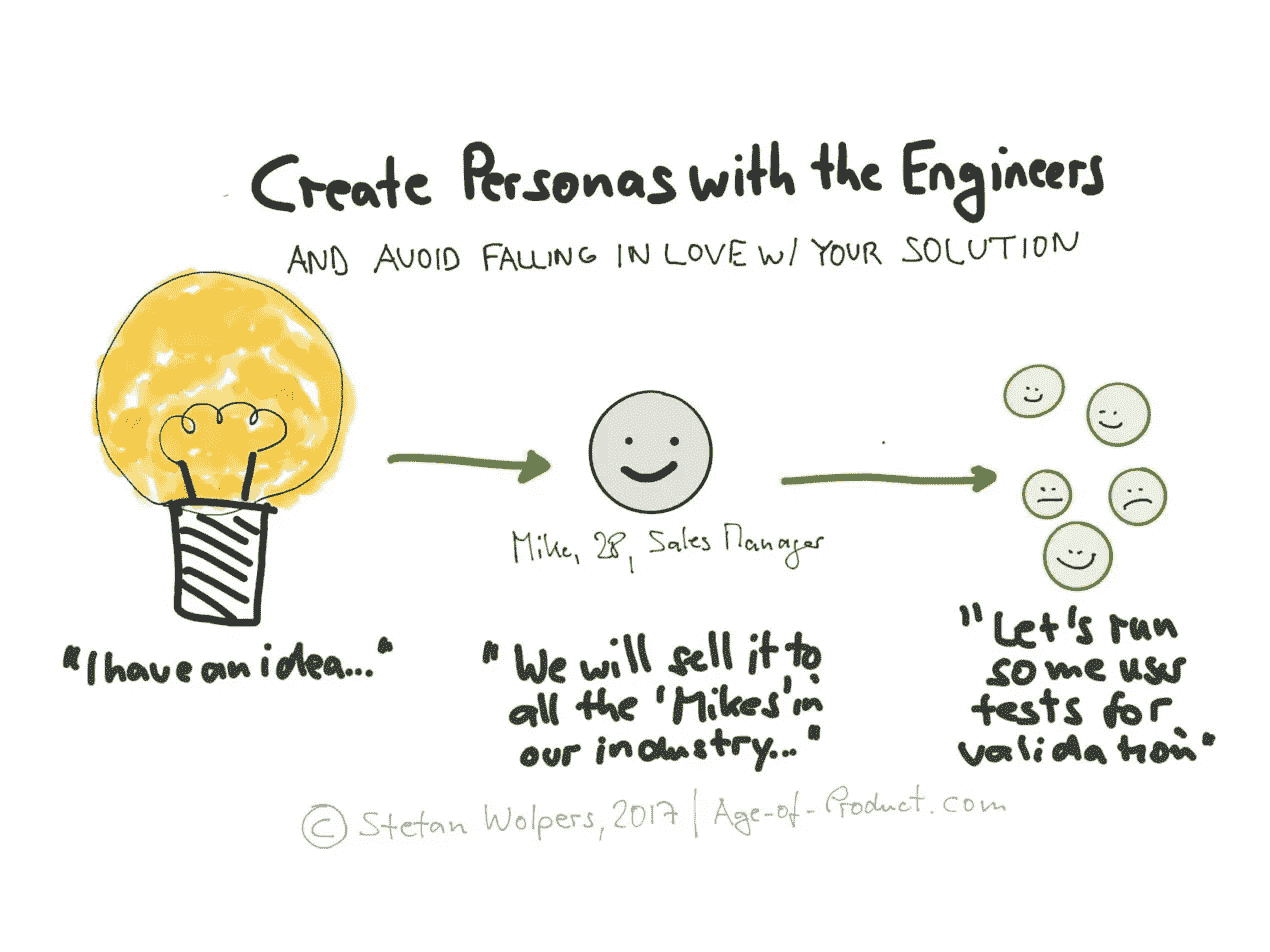 Create Personas with the Engineers
AND AVOID FALLING IN LOVE W/ YOUR SOLUTION
Mike, 28, Sales Manager
"I have an idea..."
"We will sell it to
all the 'Mikes' in
our industry..."
"Let's run
some user
tests for
validation"
© Stefan Wolpers, 2017 | Age-of-Product.com